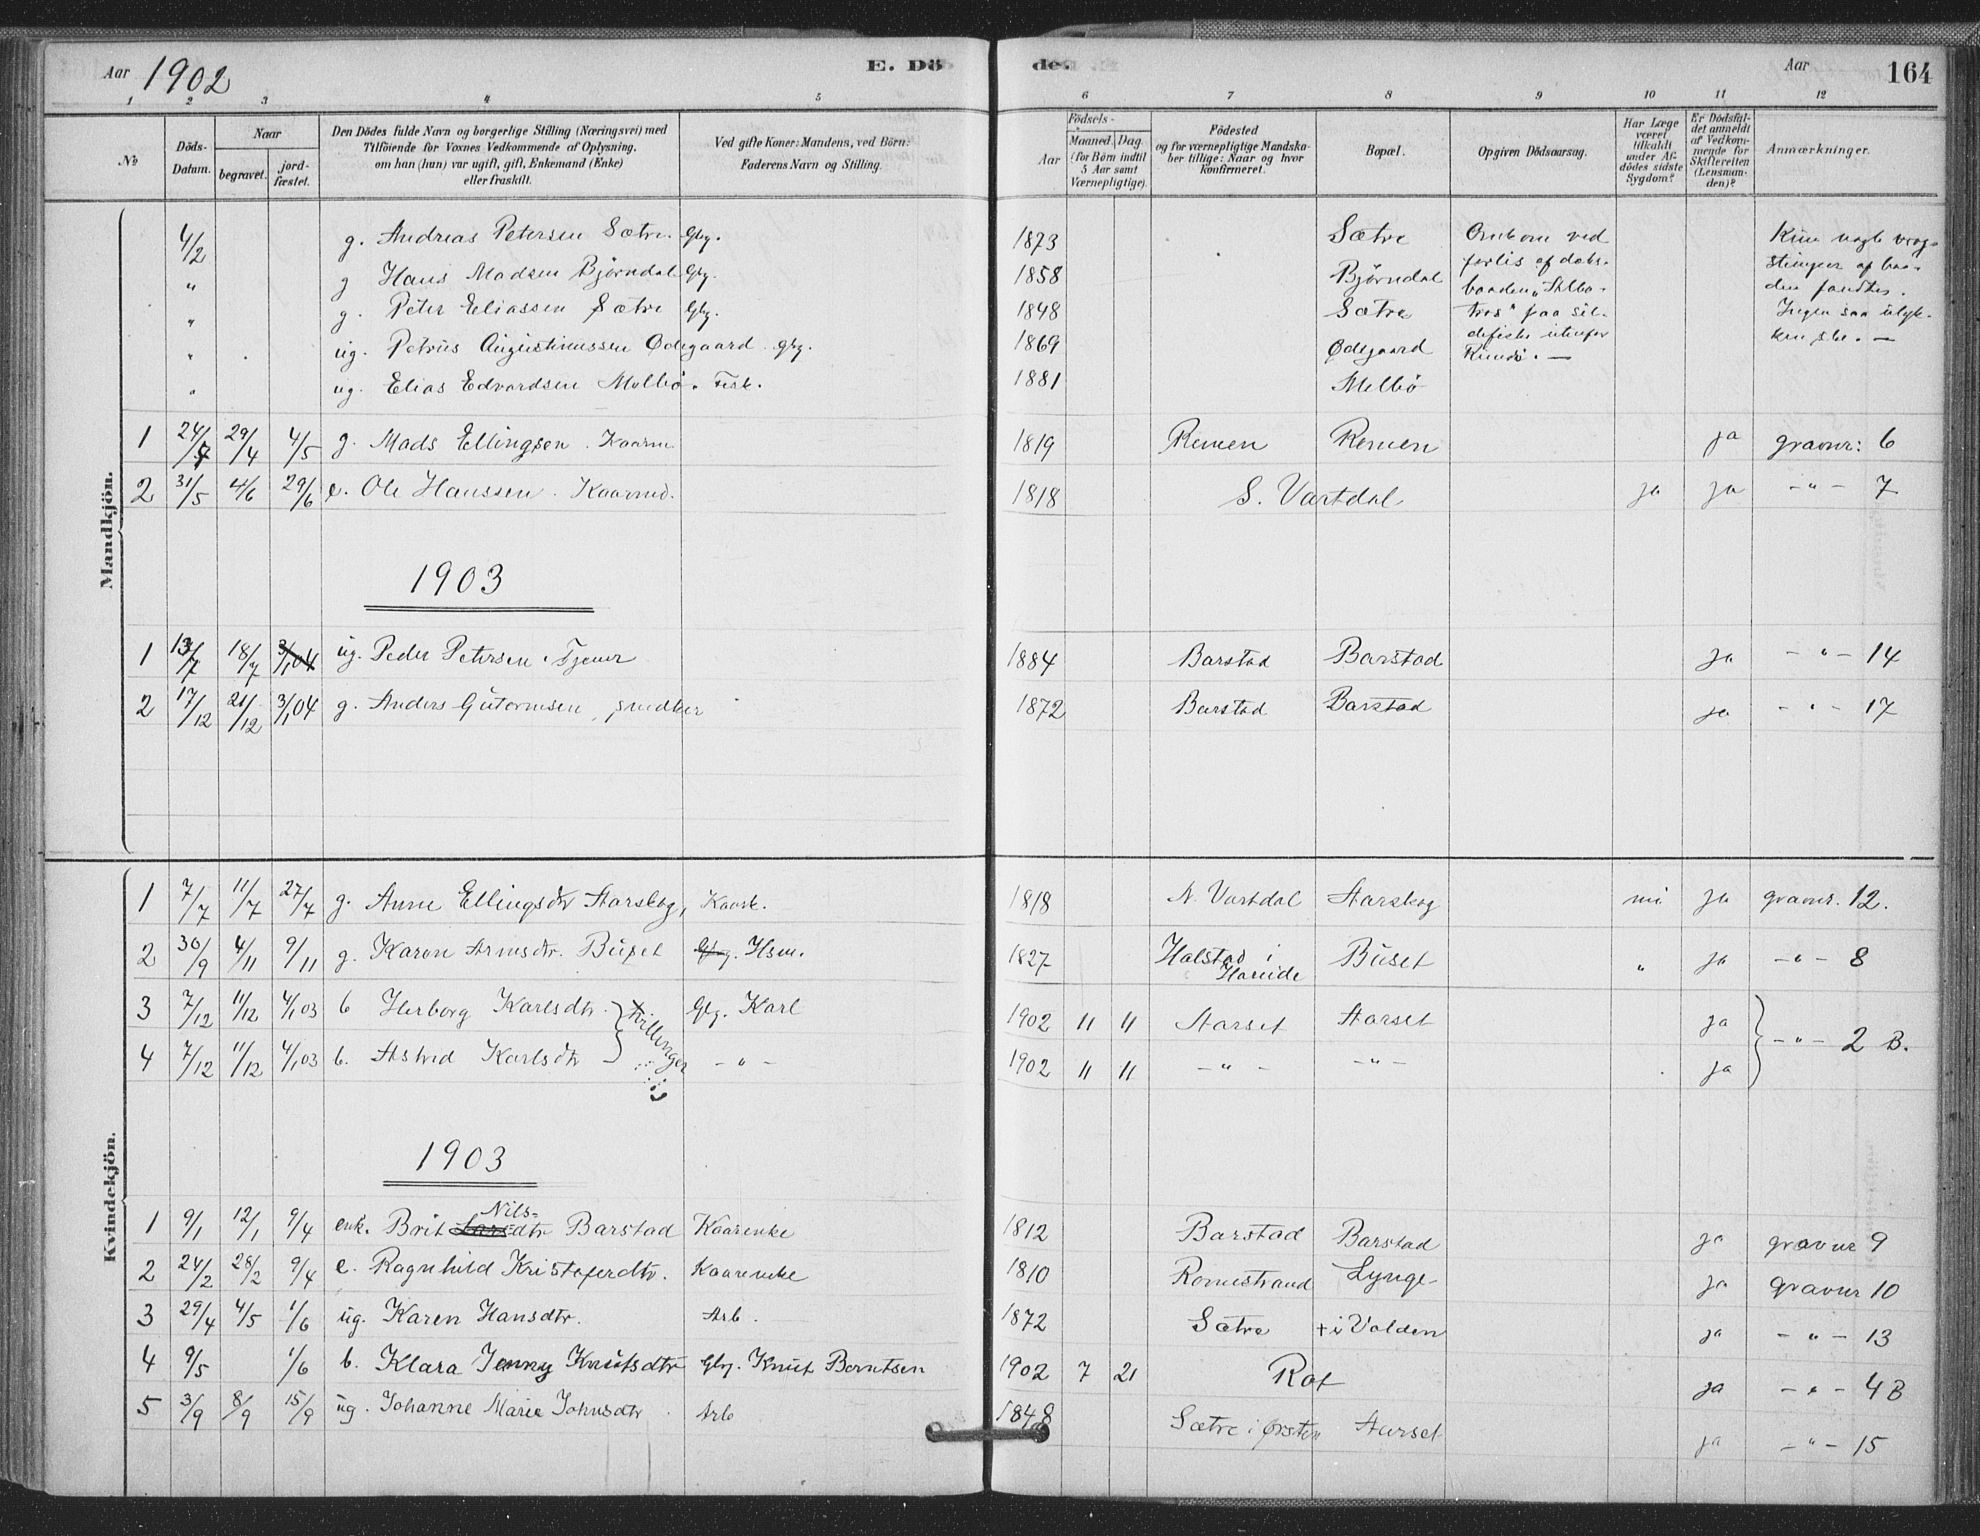 Aar 1902 E. Dö de. Aar 164
1 2 3 4 5 6 7 8 9 10 11 12
No
Döds-Datum.
Naar
begravet. jord-fæstet.
Den Dödes fulde Navn og borgerlige Stilling (Næringsvei) med
Tilföiende for Voxnes Vedkommende af Oplysning,
om han (hun) var ugift, gift, Enkemand (Enke)
eller fraskilt.
Ved gifte Koner: Mandens, ved Börn:
Faderens Navn og Stilling.
Födsels-
Aar Maaned. Dag.
(for Börn indtil
5 Aar samt
Værnepligtige).
Födested
og for værnepligtige Mandska-
ber tillige: Naar og hvor
konfirmeret.
Bopæl.
Opgiven Dödsaarsag.
Har Læge
været
tilkaldt
under Af-
dödes sidste
Sygdom?
Er Dödsfal-
det anmeldt
af Vedkom-
mende for
Skifteretten
(Lensman-
den)?
Anmærkninger.
Mandkjön.
4/2 g. Andreas Petersen Sætre. Gbr. 1873 Sætre Omkom ved Kun nogle vrag-
" g Hans Madsen Bjørndal Gbr. 1858 Bjørndal forlis af døks- stumper af baa-
" g. Peter Eliassen Sætre Gbr. 1848 Sætre baaden "Alba- den fandtes.
" ug. Petrus Augustinussen Ødegaard gbr. 1869 Ødegaard tros" paa sil- Ingen saa ulyk-
" ug. Elias Edvardsen Melbø. Fisk. 1881 Melbø defiske utenfor ken ske. —
Rundø. —
1 24/4 29/4 4/5 g. Mads Ellingsen. Kaarm 1819 Remen Remen ja gravnr: 6
2 31/5 4/6 29/6 e. Ole Hanssen. Kaarmd. 1818 S. Vartdal ja ja - " - 7
1903
1 13/7 18/7 3/1 04 ug. Peder Petersen. Tjener 1884 Barstad Barstad ja - " - 14
2 17/12 21/12 3/1 04 g. Anders Gutormsen, snedker 1872 Barstad Barstad ja - " - 17
Kvindekjön.
1 7/7 11/7 27/7 g. Anne Ellingsdtr Aarskog, Kaark. 1818 N. Vartdal Aarskog ja gravnr. 12.
2 30/9 4/11 9/11 g. Karen Arnsdtr. Buset Hsm. 1827 Halstad i Hareide Buset " ja - " - 8
3 7/12 11/12 4/1 03 b Herborg Karlsdtr. Gbr. Karl 1902 11 11 Aarset Aarset ja
Tvillinger
4 7/12 11/12 4/1 03 b. Astrid Karlsdtr - " - 1902 11 11 - " - - " - ja - " - 2 B.
1903
1 9/1 12/1 9/4 enk. Brit Larsdtr Nils- Barstad Kaarenke 1812 Barstad Barstad ja gravnr 9
2 24/2 28/2 9/4 e. Ragnhild Kristoferdtr. Kaarenke 1810 Romestrand Lynge ja gravnr 10
3 29/4 4/5 1/6 ug. Karen Hansdtr. Arb. 1872 Sætre + i Volden ja - " - 13
4 9/5 1/6 b. Klara Jenny Knutsdtr Gbr. Knut Berntsen 1902 7 21 Rot ja - " - 4 B
5 3/9 8/9 15/9 ug. Johanne Marie Johnsdtr Arb 1848 Sætre i Ørsten Aarset ja - " - 15